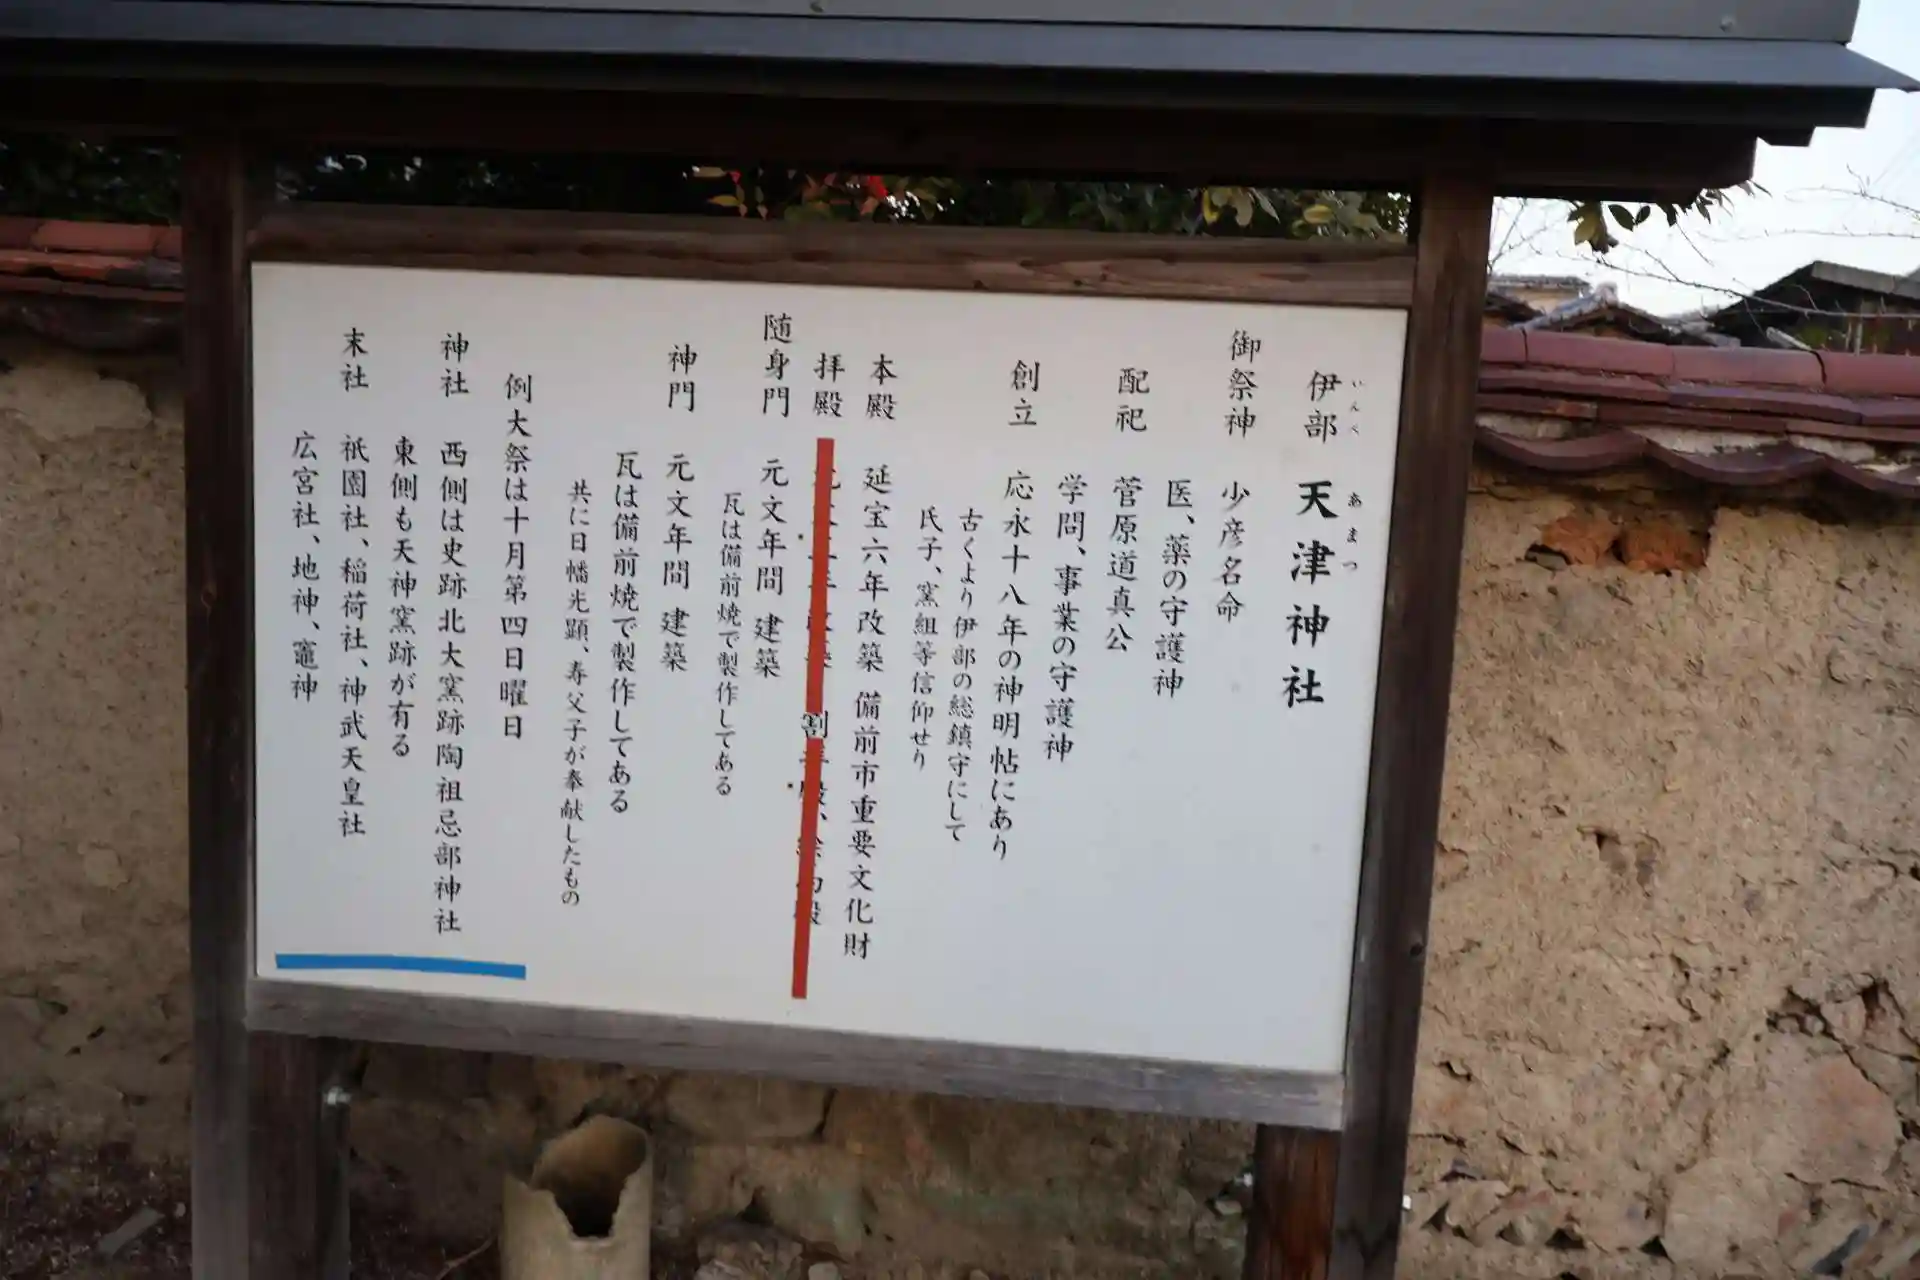 いんべ あまつ
伊部 天津神社
御祭神 少彦名命
医、薬の守護神
配祀 菅原道真公
学問、事業の守護神
創立 応永十八年の神明帖にあり
古くより伊部の総鎮守にして
氏子、窯組等信仰せり
本殿 延宝六年改築 備前市重要文化財
拝殿 割拝殿、
随身門 元文年間 建築
瓦は備前焼で製作してある
神門 元文年間 建築
瓦は備前焼で製作してある
共に日幡光顕、寿父子が奉献したもの
例大祭は十月第四日曜日
神社 西側は史跡北大窯跡陶祖忌部神社
東側も天神窯跡が有る
末社 祇園社、稲荷社、神武天皇社
広宮社、地神、竈神